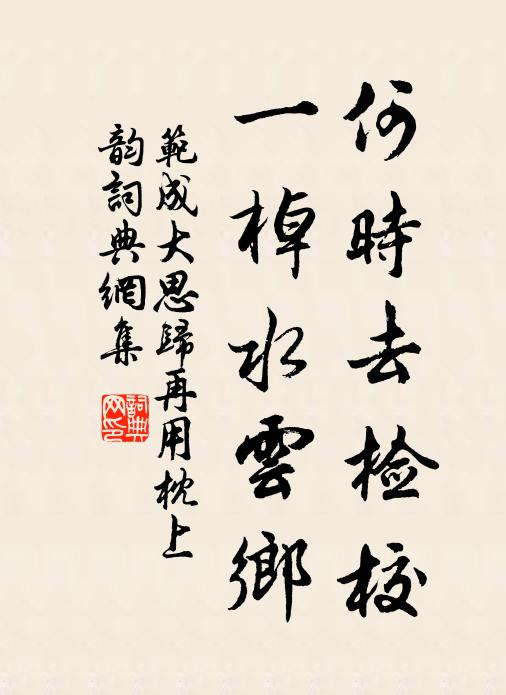 何時去檢校
一棹水雲鄉
範成大思歸再用枕上
韵詞典網集
詞典
网印